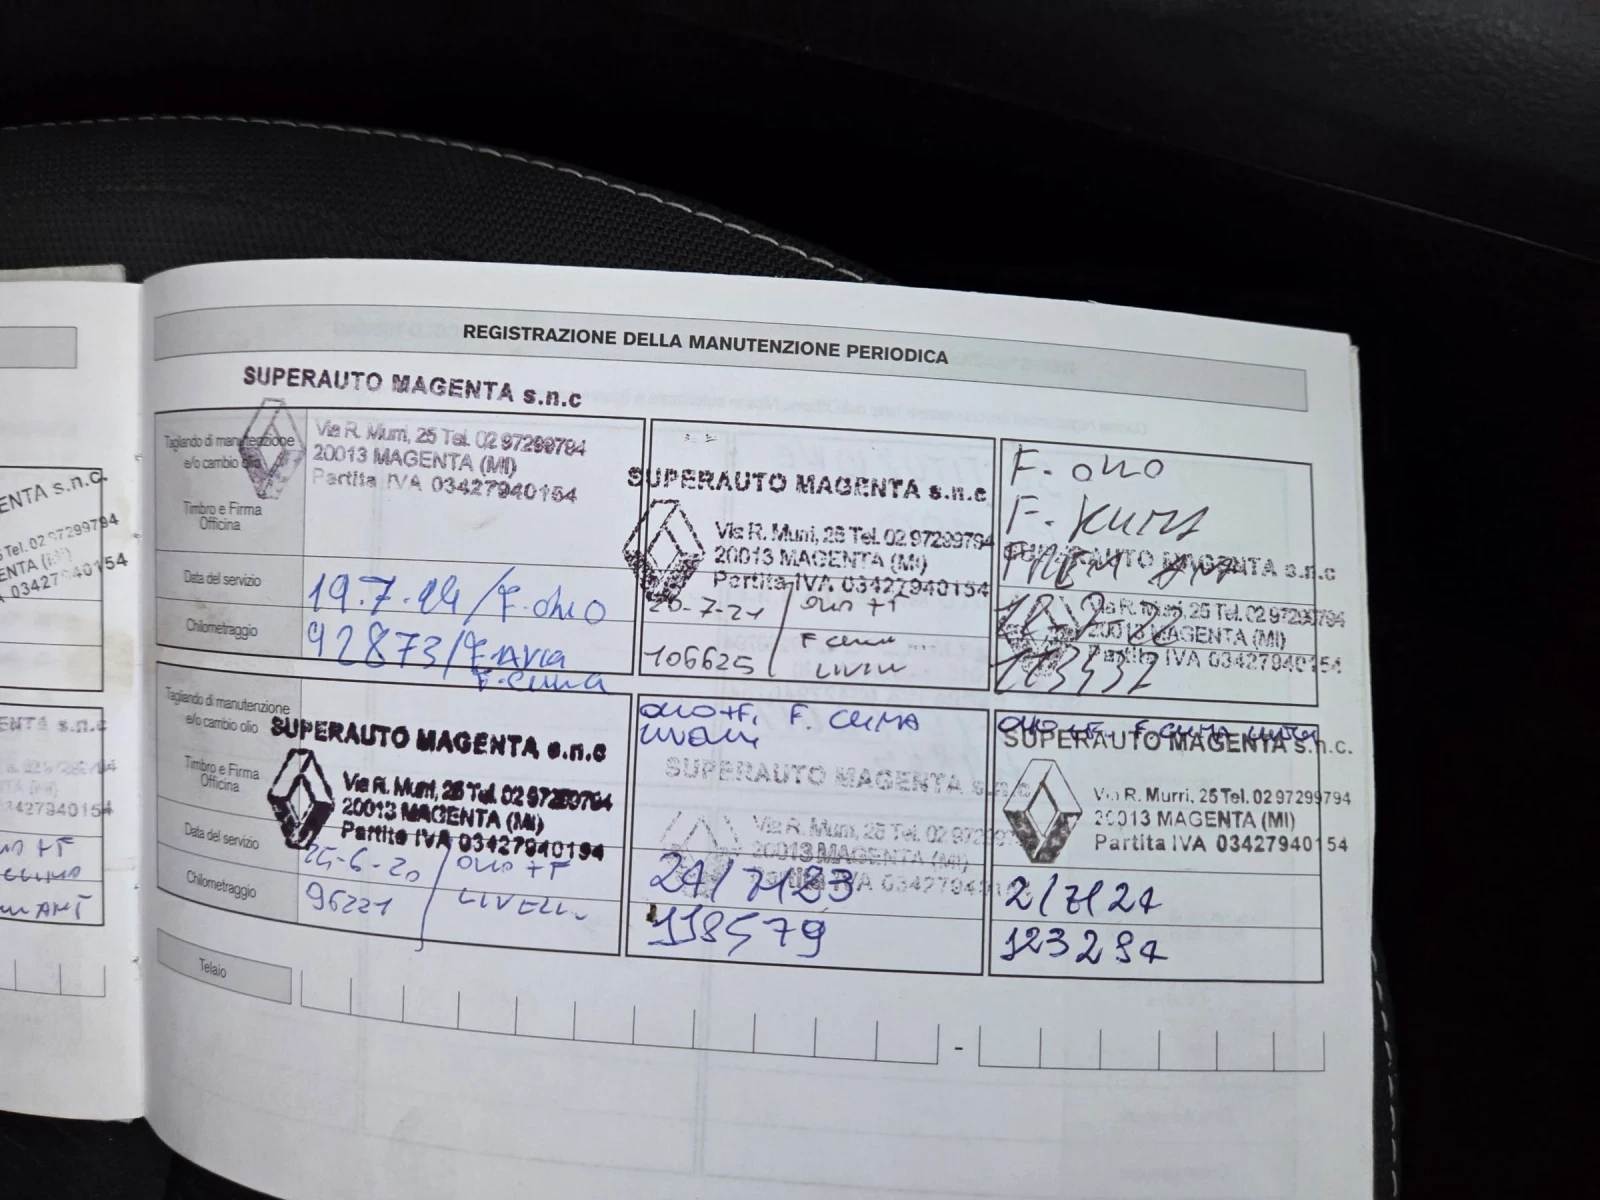 REGISTRAZIONE DELLA MANUTENZIONE PERIODICA
SUPERAUTO MAGENTA s.n.c
Via R. Murri, 25 Tel. 02 97299794
20013 MAGENTA (MI)
Partita IVA 03427940154
Tagliando di manutenzione
e/o cambio olio
Timbro e Firma
Officina
Data del servizio
19.7.19/F.olio
Chilometraggio
92873/F.ARIA
F.CLIMA
SUPERAUTO MAGENTA s.n.c
Via R. Murri, 25 Tel. 02 97299794
20013 MAGENTA (MI)
Partita IVA 03427940154
-7-21 / olio +F
F CLIMA
106625
LIVELLI
F. olio
F. KLIMA
SUPERAUTO MAGENTA s.n.c
Via R. Murri, 25 Tel. 02 97299794
20013 MAGENTA (MI)
Partita IVA 03427940154
Tagliando di manutenzione
e/o cambio olio
Timbro e Firma
Officina
SUPERAUTO MAGENTA s.n.c
Via R. Murri, 25 Tel. 02 97299794
20013 MAGENTA (MI)
Partita IVA 03427940154
Data del servizio
25-6-20 / olio +F
Chilometraggio
96221
LIVELLI
OLIO+F. F. CLIMA
LIVELLI
SUPERAUTO MAGENTA s.n.c
Via R. Murri, 25 Tel. 02 972
20013 MAGENTA (MI)
Partita IVA 03427940154
24/7/23
118579
OLIO+F. F.CLIMA
SUPERAUTO MAGENTA s.n.c.
Via R. Murri, 25 Tel. 02 97299794
20013 MAGENTA (MI)
Partita IVA 03427940154
2/7/24
123294
Telaio
-
ENTA s.n.c.
Tel. 02 97299794
ENTA (MI)
03427940154
ENTA s.n.c
3427940154
+F
CLIMA